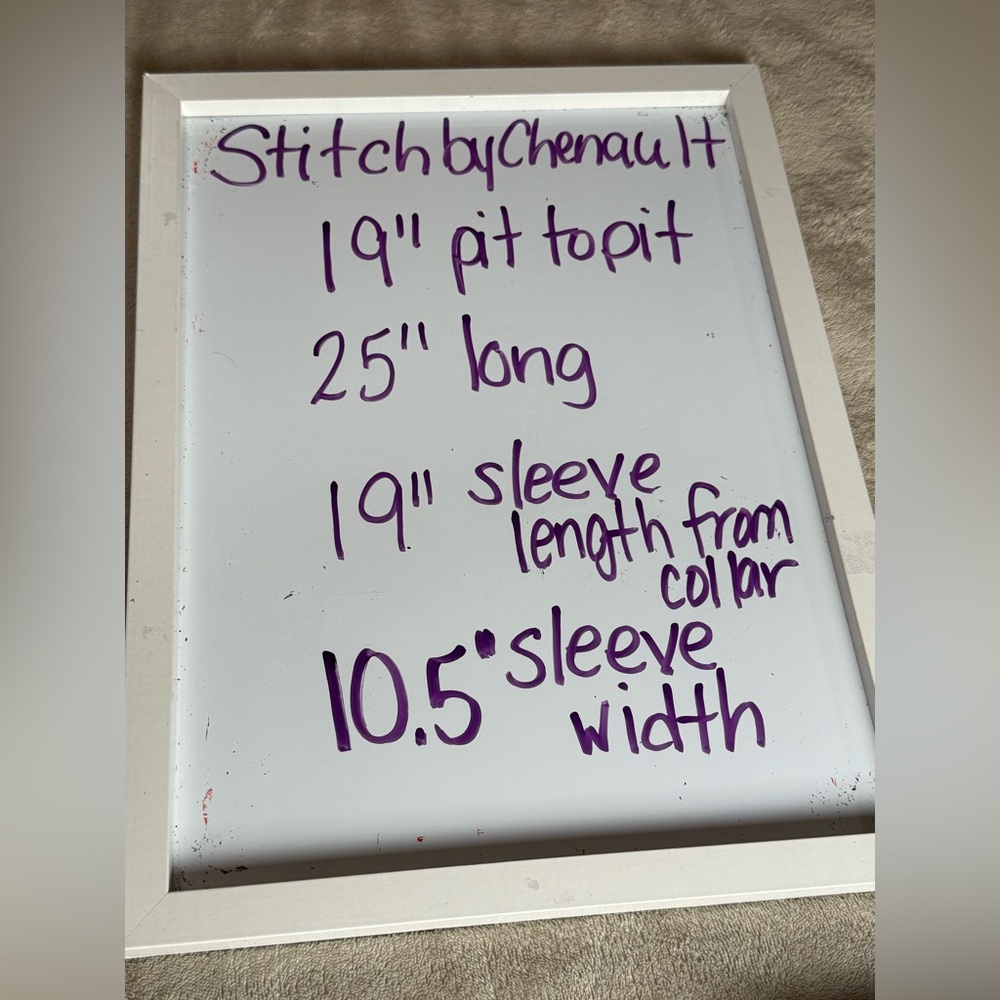 StitchbyChenault
19" pit to pit
25" long
19" sleeve
length from
collar
10.5" sleeve
width